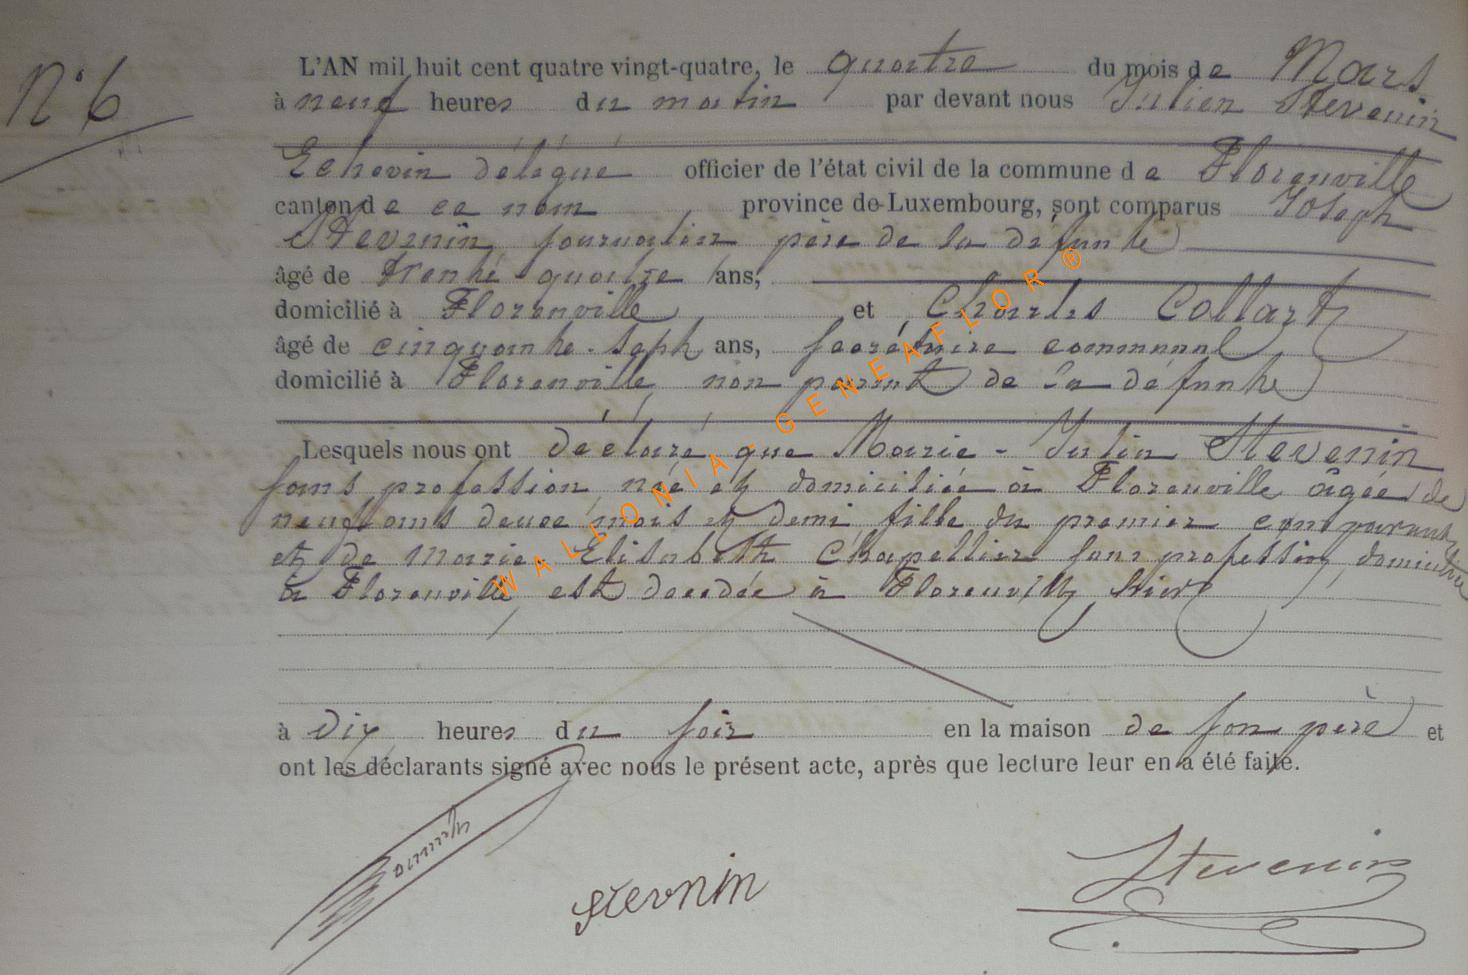 N° 6
L'AN mil huit cent quatre vingt-quatre, le quatre du mois de Mars
à neuf heures du matin par devant nous Julien Stevenin
Echevin délégué officier de l'état civil de la commune de Florenville
canton de ce nom province de Luxembourg, sont comparus Joseph
Stevenin, journalier père de la défunte
âgé de trente-quatre ans,
domicilié à Florenville et Charles Collart
âgé de cinquante-sept ans, secrétaire communal
domicilié à Florenville, non parent de la défunte
Lesquels nous ont déclaré que Marie-Julie Stevenin
sans profession, née et domiciliée à Florenville âgée de
neuf ans deux mois et demi fille du premier comparant
et de Marie-Elisabeth Chapellier sans profession, domiciliée
à Florenville, est décédée à Florenville hier
à dix heures du soir en la maison de son père et
ont les déclarants signé avec nous le présent acte, après que lecture leur en a été faite.
stevnin
Stevenin
WALLONIA-GENEAFLOR ®